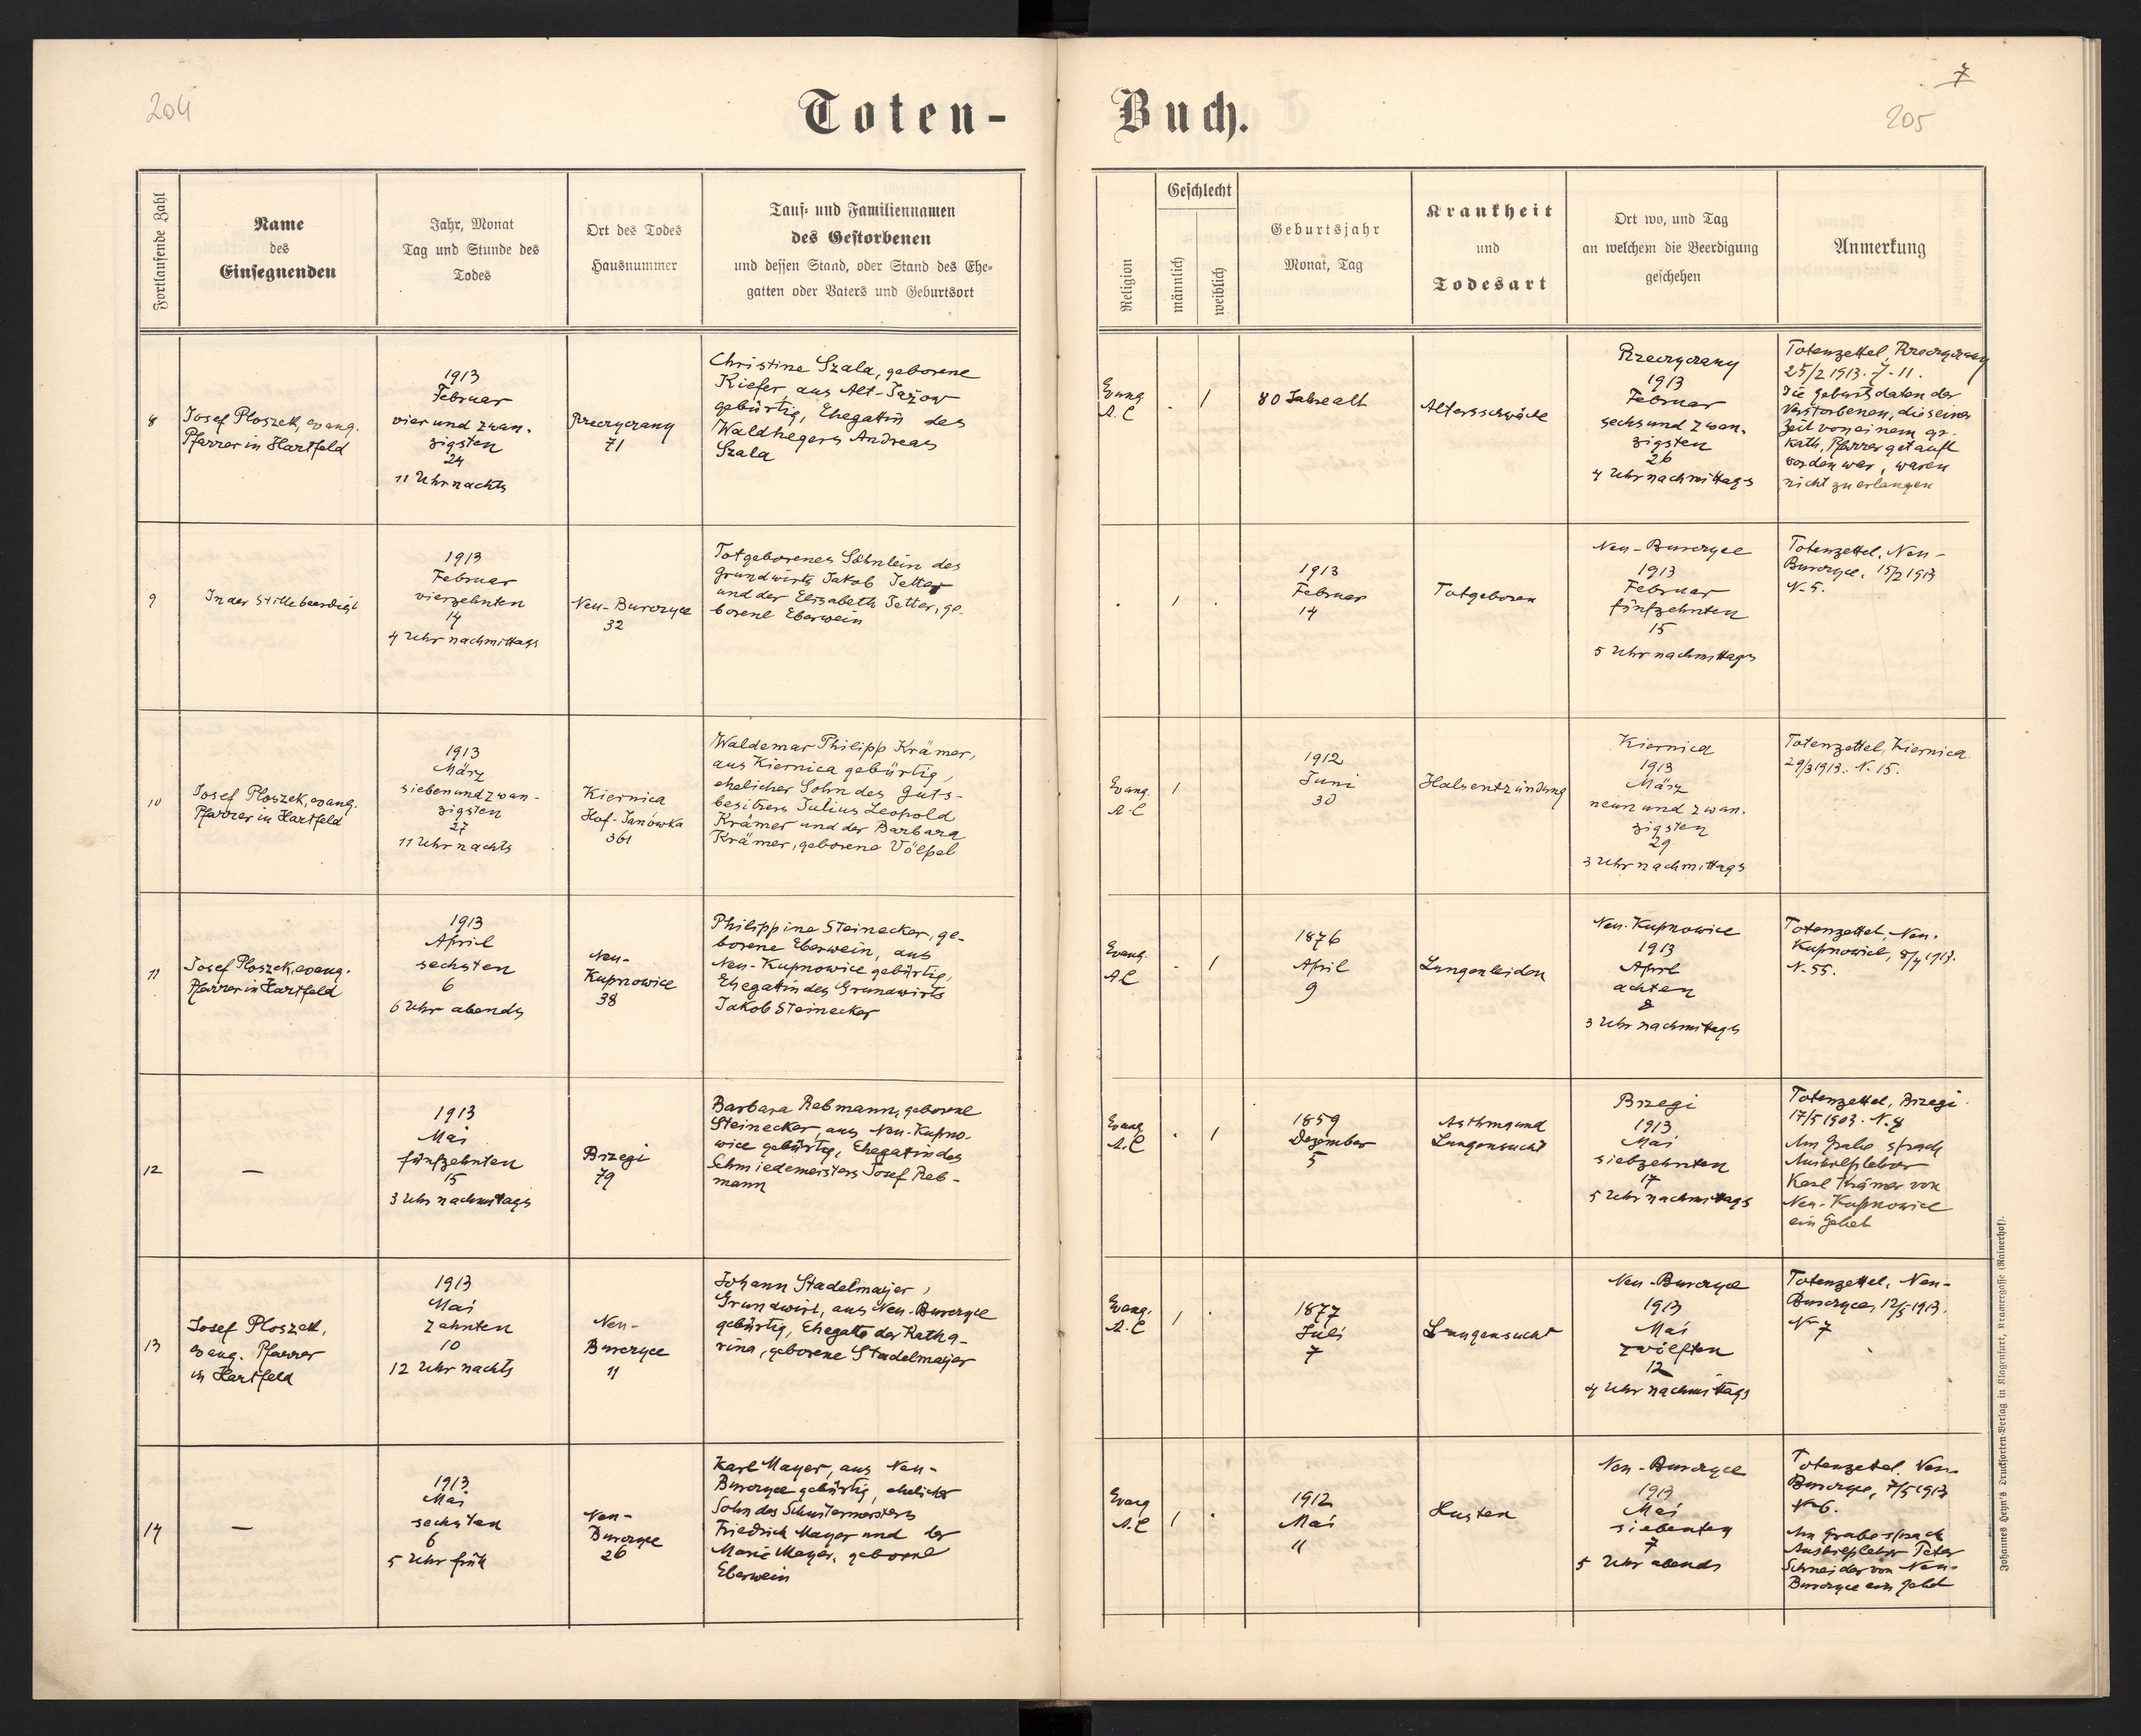 204
Toten-
Buch.
7
205
Fortlaufende Zahl
Name
des
Einsegnenden
Jahr, Monat
Tag und Stunde des
Todes
Ort des Todes
Hausnummer
Tauf- und Familiennamen
des Gestorbenen
und dessen Stand, oder Stand des Ehe-
gatten oder Vaters und Geburtsort
Religion
Geschlecht
männlich
weiblich
Geburtsjahr
Monat, Tag
Krankheit
und
Todesart
Ort wo, und Tag
an welchem die Beerdigung
geschehen
Anmerkung
8
Josef Ploszek, evang.
Pfarrer in Hartfeld
1913
Februar
vier und zwan-
zigsten
24
11 Uhr nachts
Rzeczyczany
71
Christine Szala, geborene
Kiefer, aus Alt-Jażow
gebürtig, Ehegattin des
Waldhegers Andreas
Szala
Evang.
A.C
. 1
80 Jahre alt
Altersschwäche
Rzeczyczany
1913
Februar
sechs und zwan-
zigsten
26
4 Uhr nachmittags
Totenzettel, Rzeczyczany
25/2 1913. N. 11.
Die Geburtsdaten der
Verstorbenen, die seiner
Zeit von einem gr.
kath. Pfarrer getauft
worden war, waren
nicht zu erlangen
9
In der Stille beerdigt
1913
Februar
vierzehnten
14
4 Uhr nachmittags
Neu-Burczyce
32
Totgeborenes Söhnlein des
Grundwirts Jakob Tetter
und der Elisabeth Tetter, ge-
borene Eberwein
. 1 .
1913
Februar
14
Totgeboren
Neu-Burczyce
1913
Februar
fünfzehnten
15
5 Uhr nachmittags
Totenzettel, Neu-
Burczyce, 15/2 1913
N. 5.
10
Josef Ploszek, evang.
Pfarrer in Hartfeld
1913
März
siebenundzwan-
zigsten
27
11 Uhr nachts
Kiernica
Hof-Janówka
361
Waldemar Philipp Krämer,
aus Kiernica gebürtig,
ehelicher Sohn des Guts-
besitzers Julius Leopold
Krämer und der Barbara
Krämer, geborene Völpel
Evang.
A.C
1
1912
Juni
30
Halsentzündung
Kiernica
1913
März
neun und zwan-
zigsten
29
3 Uhr nachmittags
Totenzettel, Kiernica
29/3 1913. N. 15.
11
Josef Ploszek, evang.
Pfarrer in Hartfeld
1913
April
sechsten
6
6 Uhr abends
Neu-
Kupnowice
38
Philippine Steinecker, ge-
borene Eberwein, aus
Neu-Kupnowice gebürtig,
Ehegatin des Grundwirts
Jakob Steinecker
Evang.
A.C
. 1
1876
April
9
Lungenleiden
Neu-Kupnowice
1913
April
achten
8
3 Uhr nachmittags
Totenzettel, Neu-
Kupnowice, 8/4 1913.
N. 55.
12
—
1913
Mai
fünfzehnten
15
3 Uhr nachmittags
Brzegi
79
Barbara Rebmann, geborene
Steinecker, aus Neu-Kupno-
wice gebürtig, Ehegatin des
Schmiedemeisters Josef Reb-
mann
Evang.
A.C
. 1
1859
Dezember
5
Asthma und
Lungensucht
Brzegi
1913
Mai
siebzehnten
17
5 Uhr nachmittags
Totenzettel, Brzegi
17/5 1903. N.
Am Grabe sprach
Aushilfslehrer
Karl Krämer von
Neu-Kupnowice
ein Gebet
13
Josef Ploszek,
evang. Pfarrer
in Hartfeld
1913
Mai
zehnten
10
12 Uhr nachts
Neu-
Burczyce
11
Johann Stadelmayer,
Grundwirt, aus Neu-Burczyce
gebürtig, Ehegatte der Katha-
rina, geborene Stadelmayer
Evang.
A.C
1 .
1877
Juli
7
Lungensucht
Neu-Burczyce
1913
Mai
zwölften
12
4 Uhr nachmittags
Totenzettel, Neu-
Burczyce, 12/5 1913.
N 7
14
—
1913
Mai
sechsten
6
5 Uhr früh
Neu-
Burczyce
26
Karl Mayer, aus Neu-
Burczyce gebürtig, ehelicher
Sohn des Schustermeisters
Friedrich Mayer und der
Marie Mayer, geborene
Eberwein
Evang
A.C
1 .
1912
Mai
11
Husten
Neu-Burczyce
1913
Mai
siebenten
7
5 Uhr abends
Totenzettel, Neu-
Burczyce, 7/5 1913
N 6.
Am Grabe sprach
Aushilfslehrer Peter
Schneider von Neu-
Burczyce ein Gebet
Johannes Heyn's Drucksorten-Verlag in Klagenfurt, Kramergasse (Rainerhof).